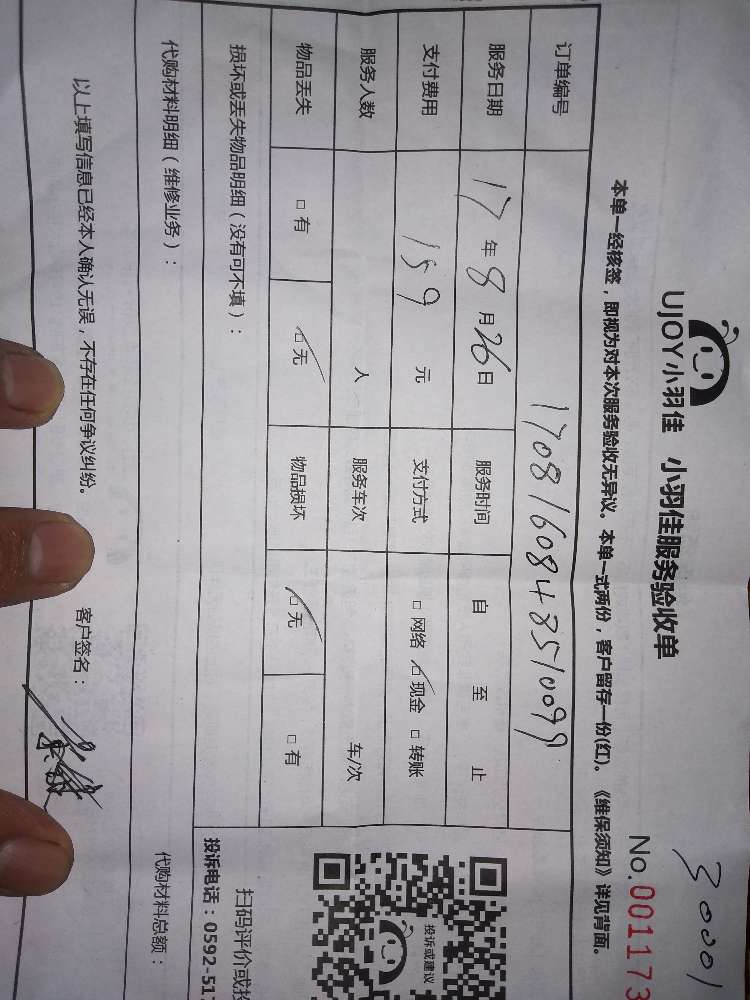 30001
UJOY小羽佳 小羽佳服务验收单
No.001173
本单一经核签，即视为对本次服务验收无异议。本单一式两份，客户留存一份(红)。《维保须知》详见背面。
订单编号 170816084851099
服务日期 17年8月26日 服务时间 自 至 止
支付费用 159元 支付方式 □网络 ☑现金 □转账
服务人数 人 服务车次 车/次
物品丢失 □有 ☑无 物品损坏 ☑无 □有
损坏或丢失物品明细（没有可不填）：
投诉或建议
扫码评价或投
投诉电话：0592-51
代购材料明细（维修业务）：
代购材料总额：
以上填写信息已经本人确认无误，不存在任何争议纠纷。 客户签名：